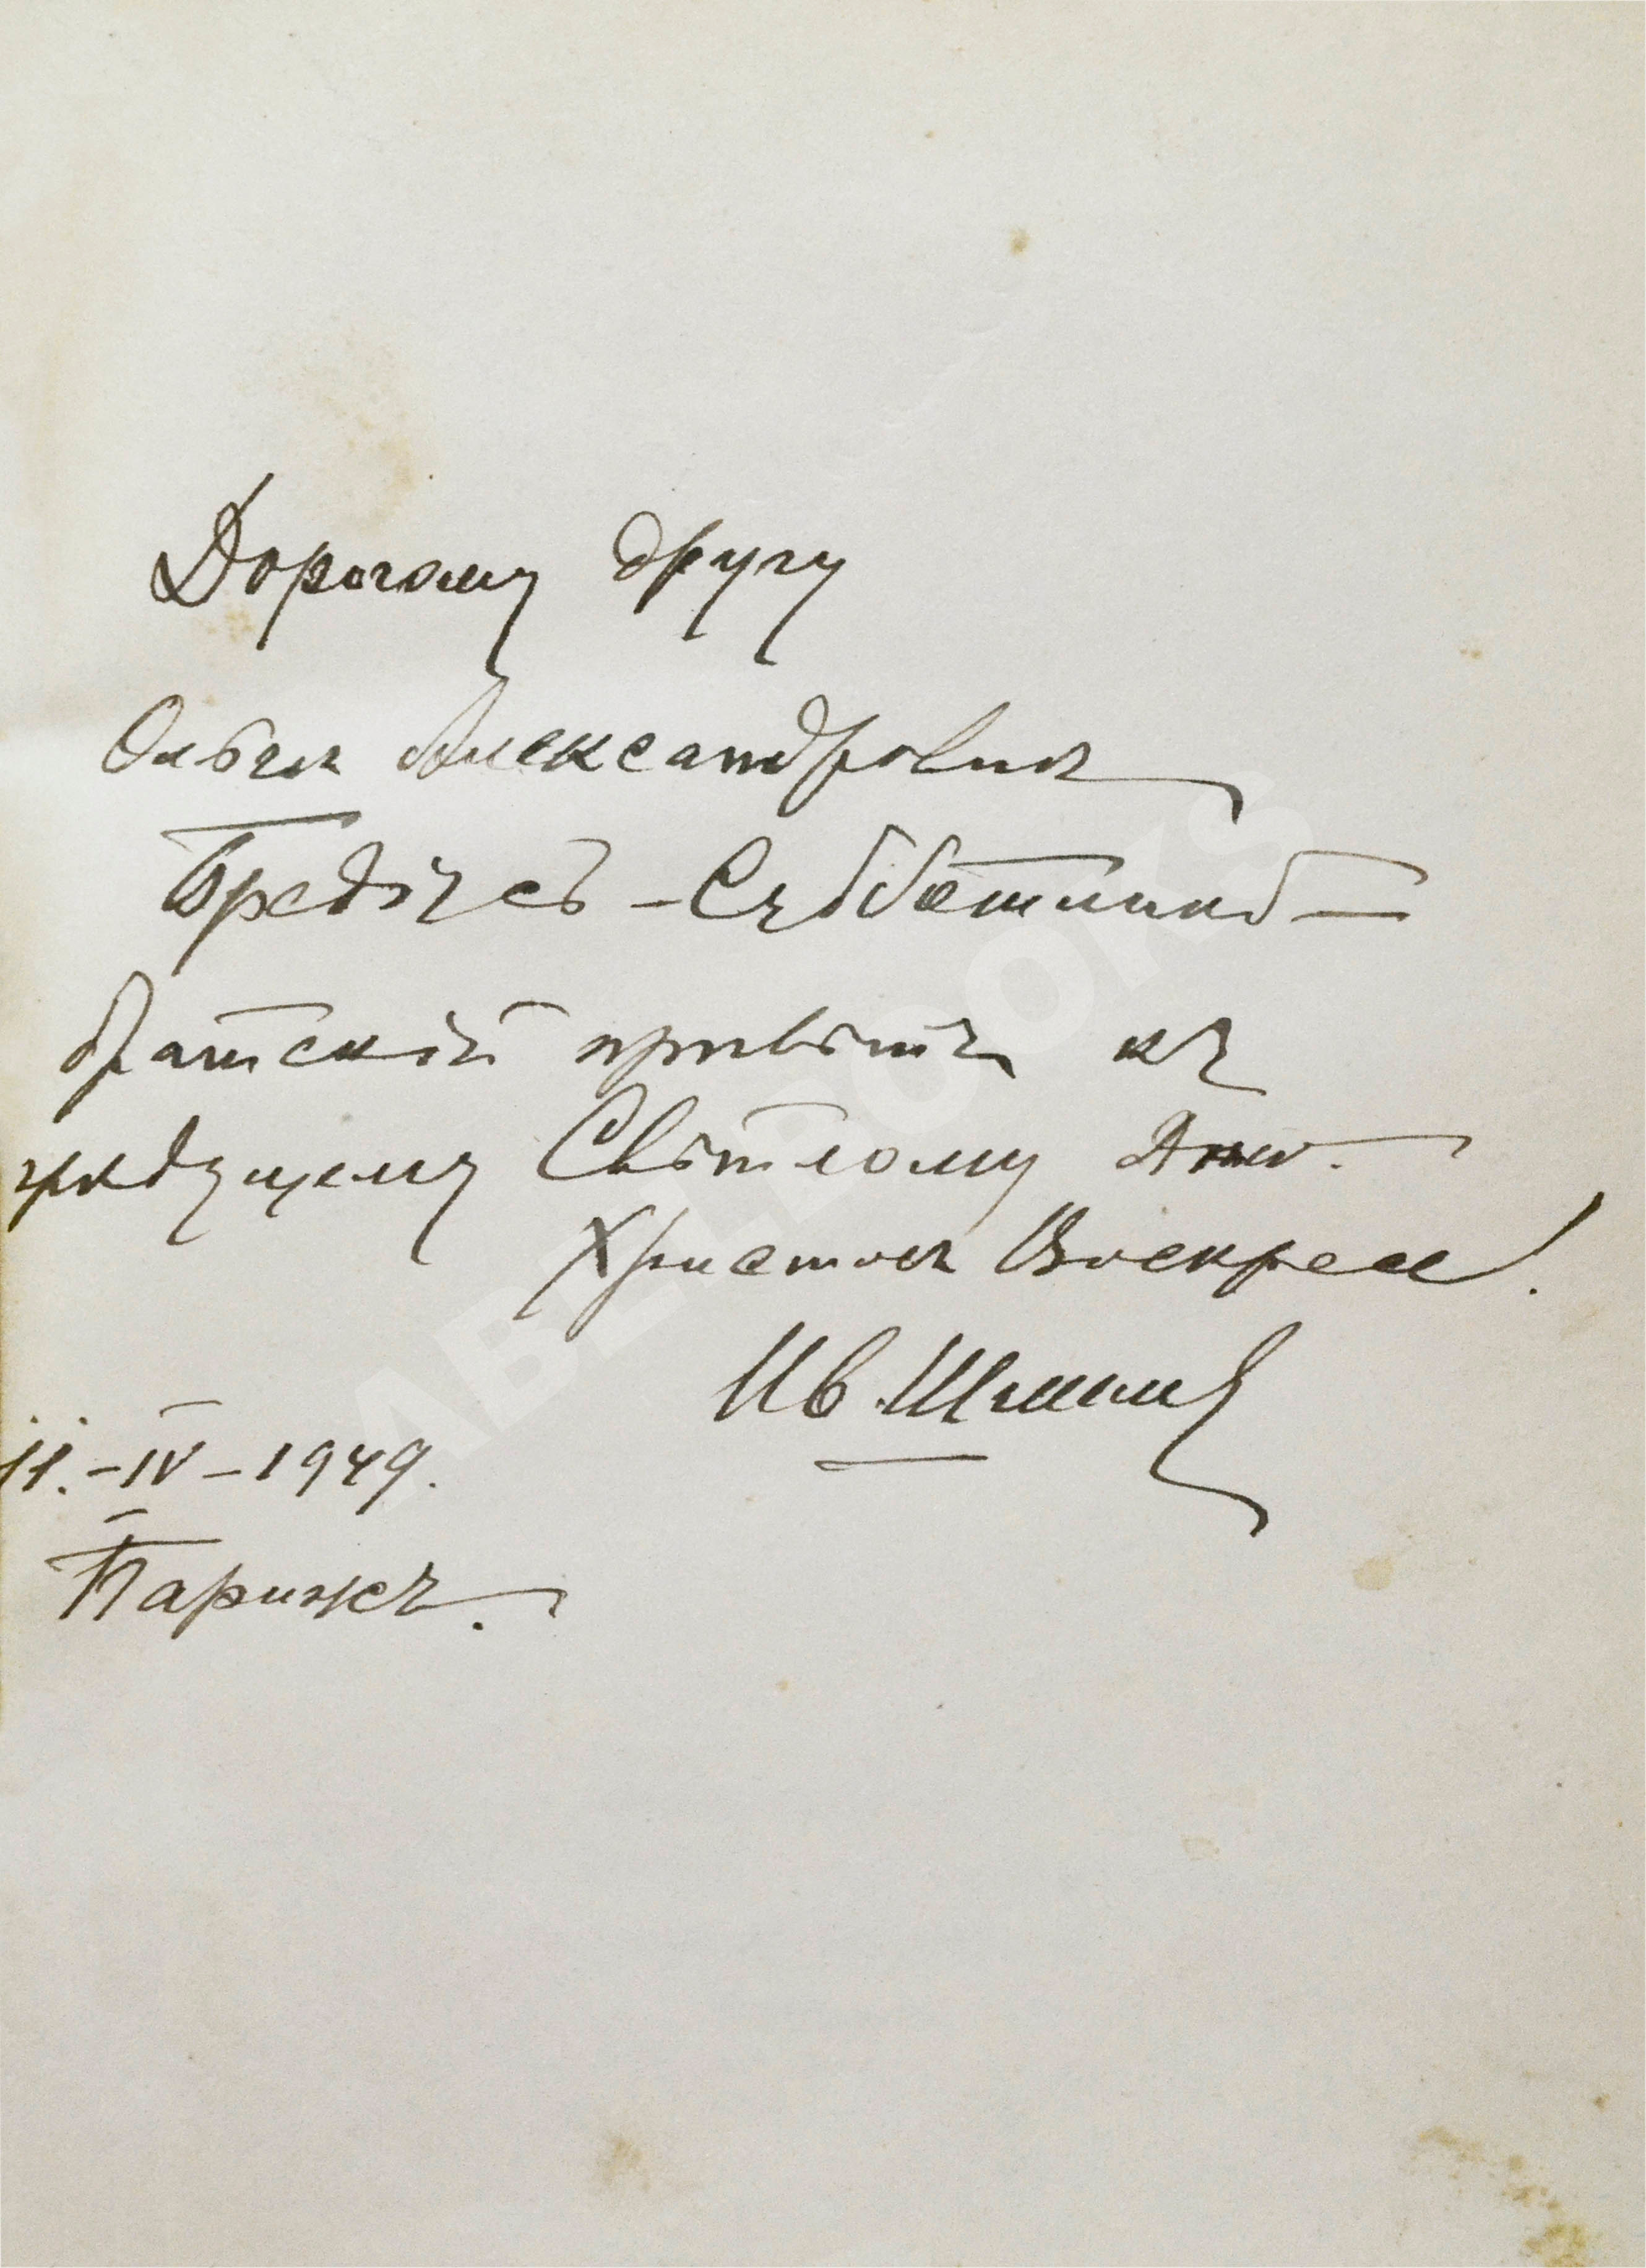 Дорогому другу
Ольгѣ Александровнѣ
Бредіусъ-Субботиной —
братскій привѣтъ къ
грядущему Свѣтлому Дню.
Христосъ Воскресе!
Ив. Шмелев
11.-IV-1949.
Парижъ.
ABELBOOKS